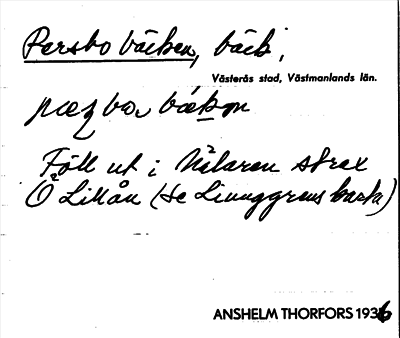 Persbo bäcken, bäck,
Västerås stad, Västmanlands län.
Föll ut i Mälaren strax
Ö Lillån (se Ljunggrens karta)
ANSHELM THORFORS 1936